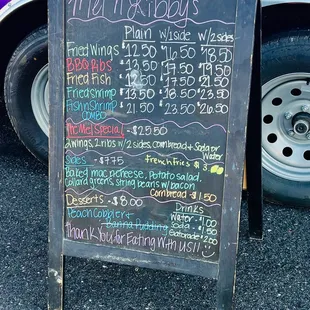 Mel n Kibby's
Plain w/side w/2 sides
Fried Wings $12.50 $16.50 $18.50
BBQ Ribs $13.50 $17.50 $19.50
Fried Fish $12.50 $17.50 $21.50
Fried shrimp $13.50 $18.50 $23.50
Fish n Shrimp $21.50 $23.50 $26.50
COMBO
The Mel Special - $25.50
2 wings, 2 ribs w/ 2 sides, cornbread + Soda or Water
Sides - $7.75 french fries
Baked mac n cheese, Potato salad,
collard greens, string beans w/ bacon
Cornbread - $1.50
Desserts - $8.00 Drinks
Peach Cobbler + Water - $1.00
Banna Pudding Soda -
Gatorade - $2.00
Thank You for Eating With us!!